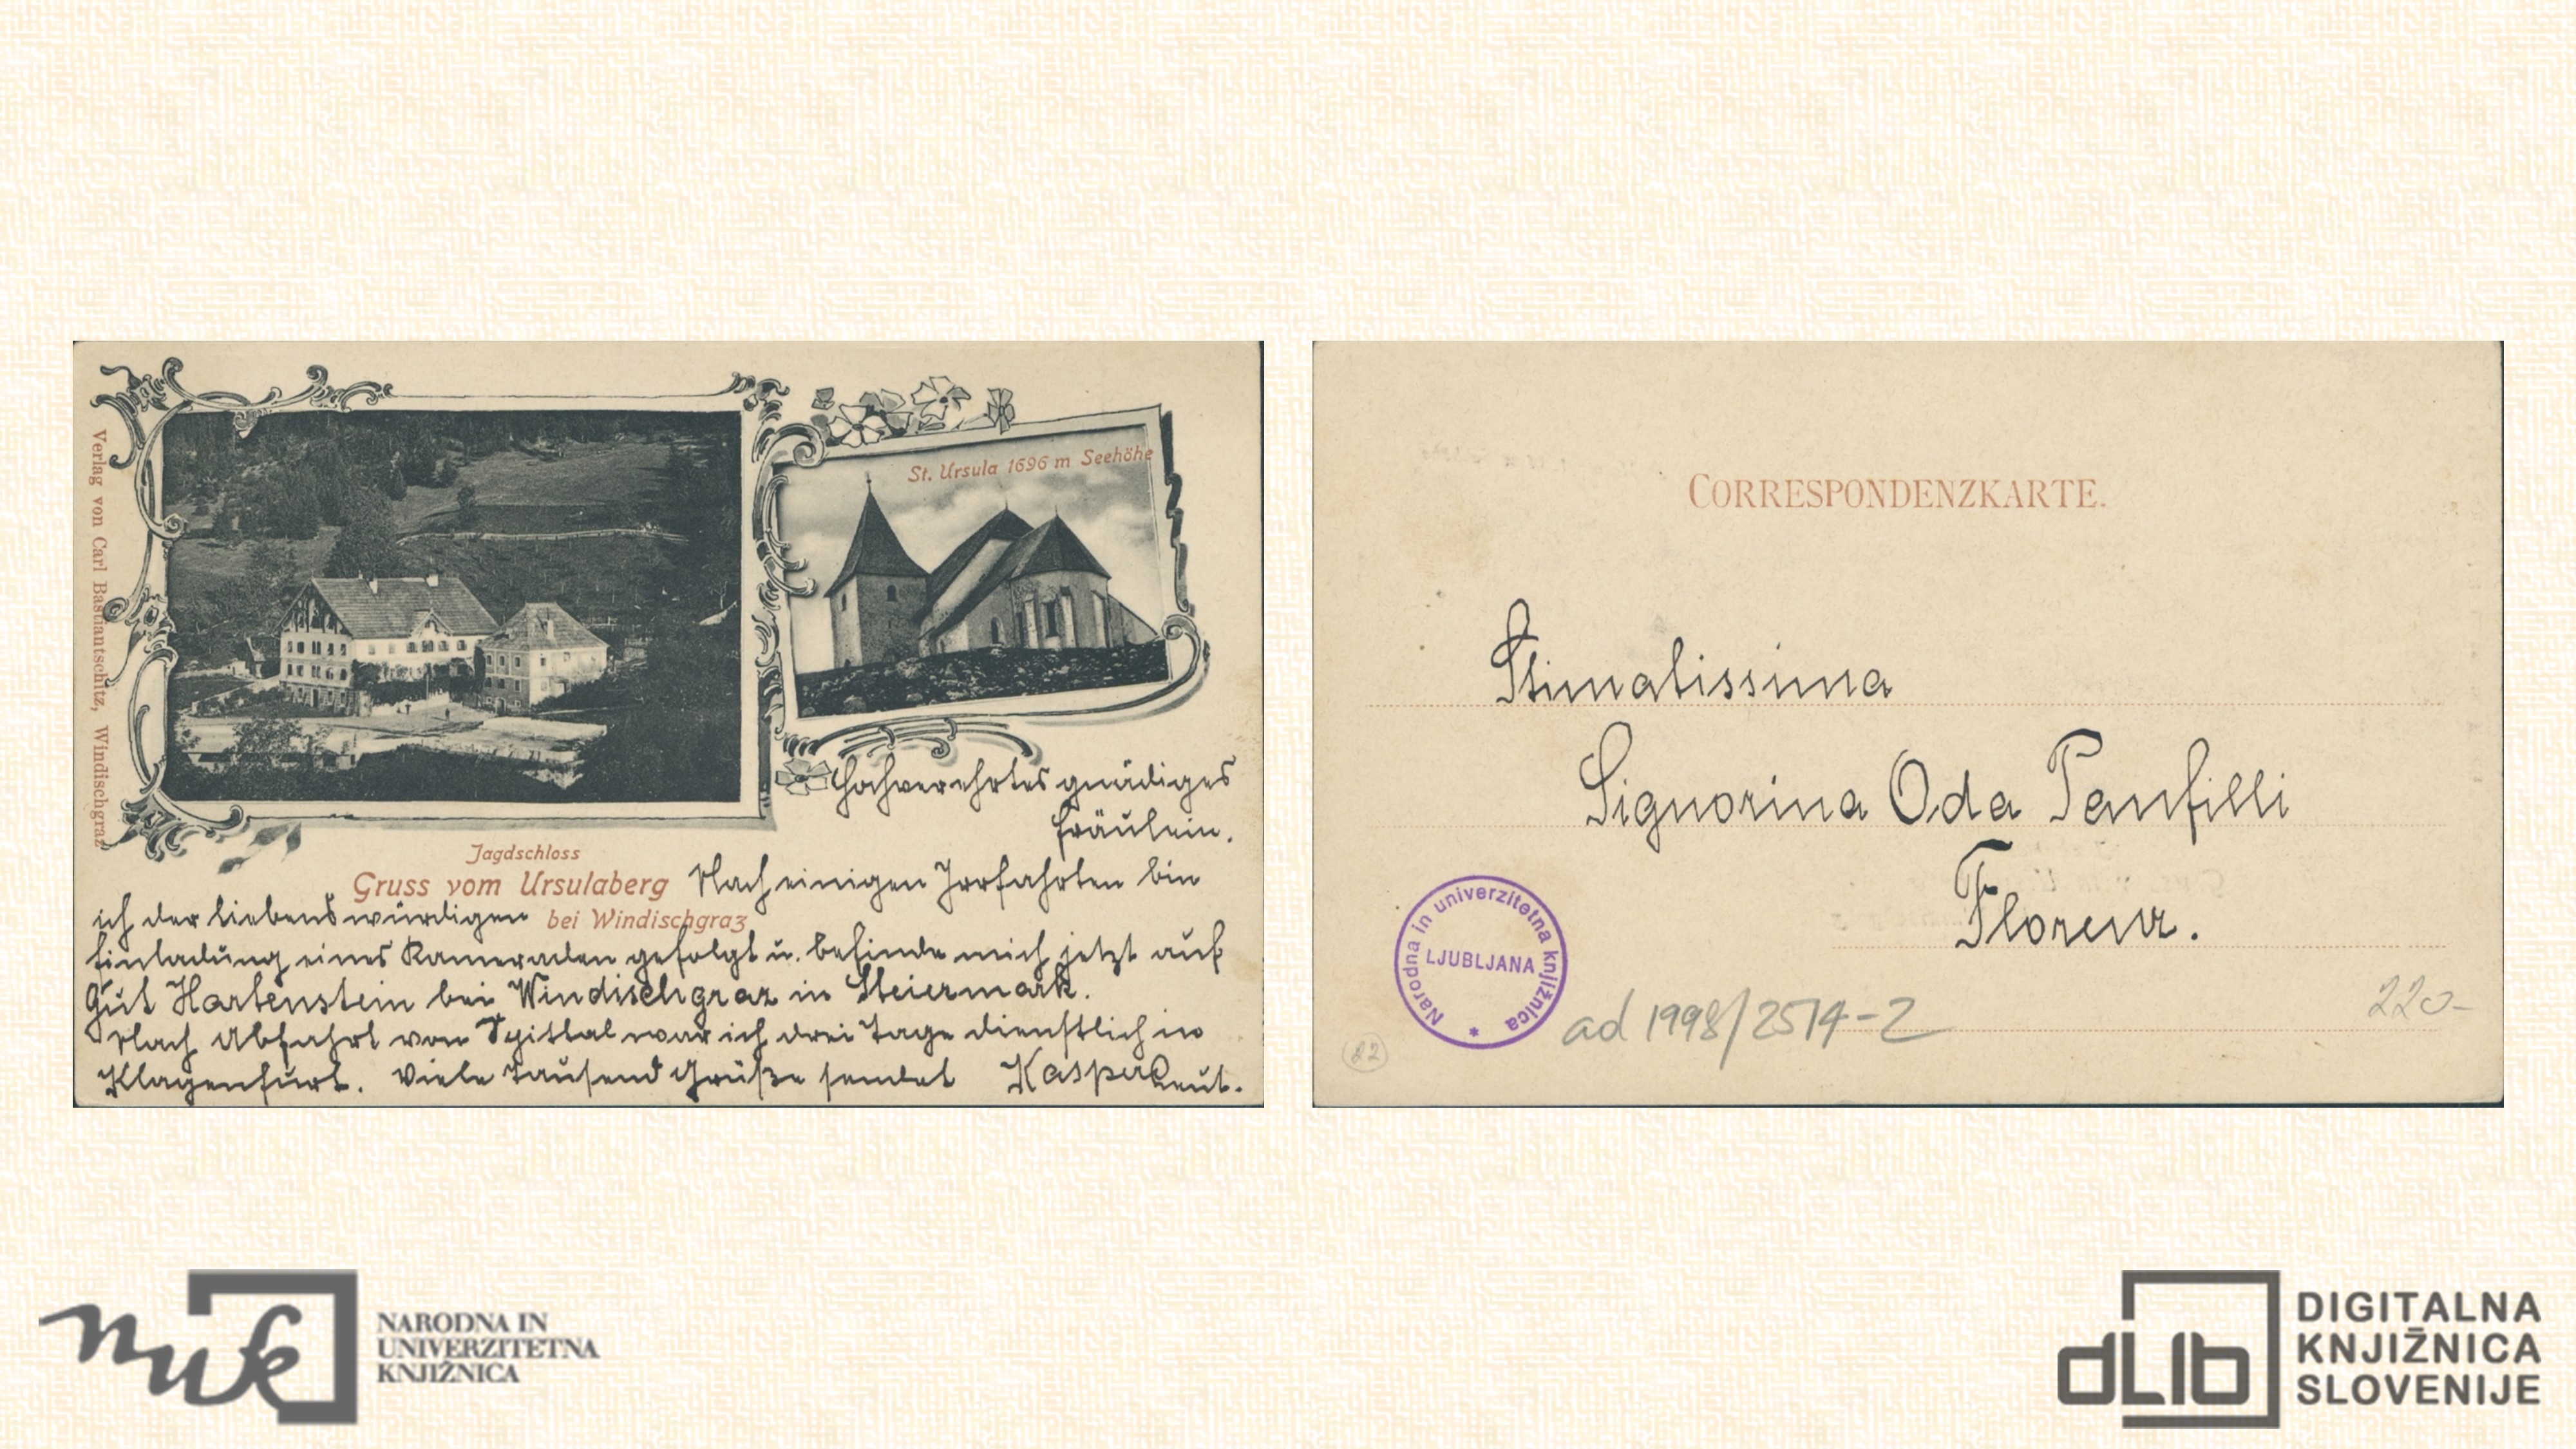 Verlag von Carl Bastiantschitz, Windischgraz
St. Ursula 1696 m Seehöhe
Hochverehrtes gnädiges
Fräulein.
Jagdschloss
Gruss vom Ursulaberg
bei Windischgraz
Nach einigen Irrfahrten bin
ich der liebenswürdigen
Einladung eines Kameraden gefolgt u. befinde mich jetzt auf
Gut Hartenstein bei Windischgraz in Steiermark.
Nach Abfahrt von Spittal war ich drei Tage dienstlich in
Klagenfurt. Viele tausend Grüße sendet Kasper Leut.
CORRESPONDENZKARTE.
Stimatissima
Signorina Oda Panfilli
Florenz.
Narodna in univerzitetna knjižnica
LJUBLJANA
*
ad 1998/2514-2
220-
82
nuk
NARODNA IN
UNIVERZITETNA
KNJIŽNICA
dLib
DIGITALNA
KNJIŽNICA
SLOVENIJE